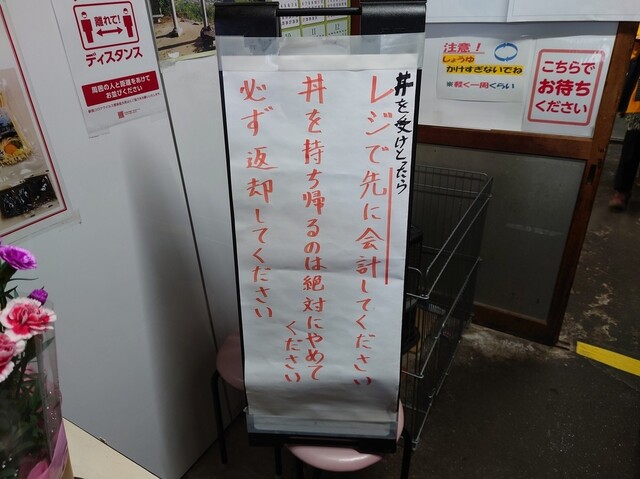 離れて!
ディスタンス
周囲の人と距離をあけて
お並びください
丼を受けとったら
レジで先に会計してください
丼を持ち帰るのは絶対にやめて
ください
必ず返却してください
注意!
しょうゆ
かけすぎないでね
※軽く一周くらい
こちらで
お待ち
ください